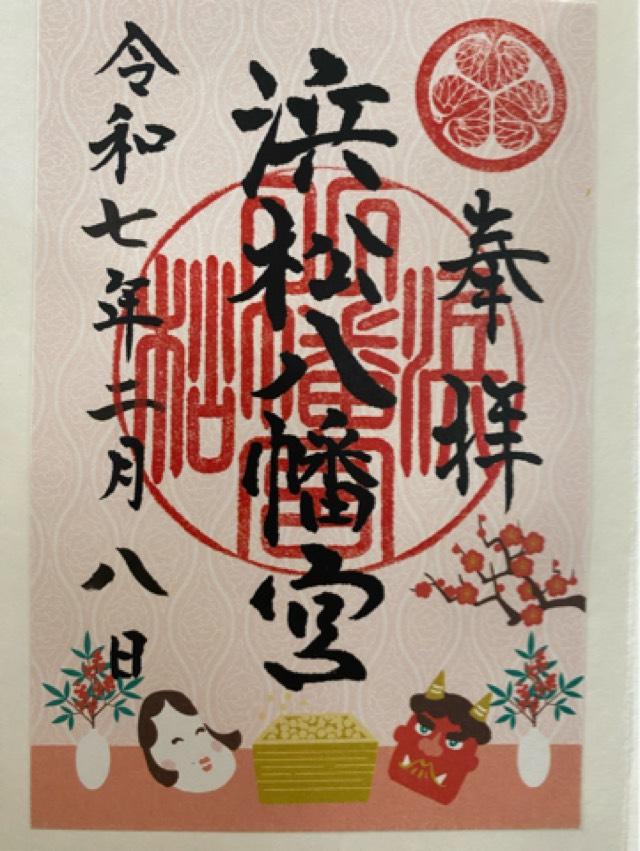 奉拝
浜松八幡宮
令和七年二月八日
浜松八幡宮